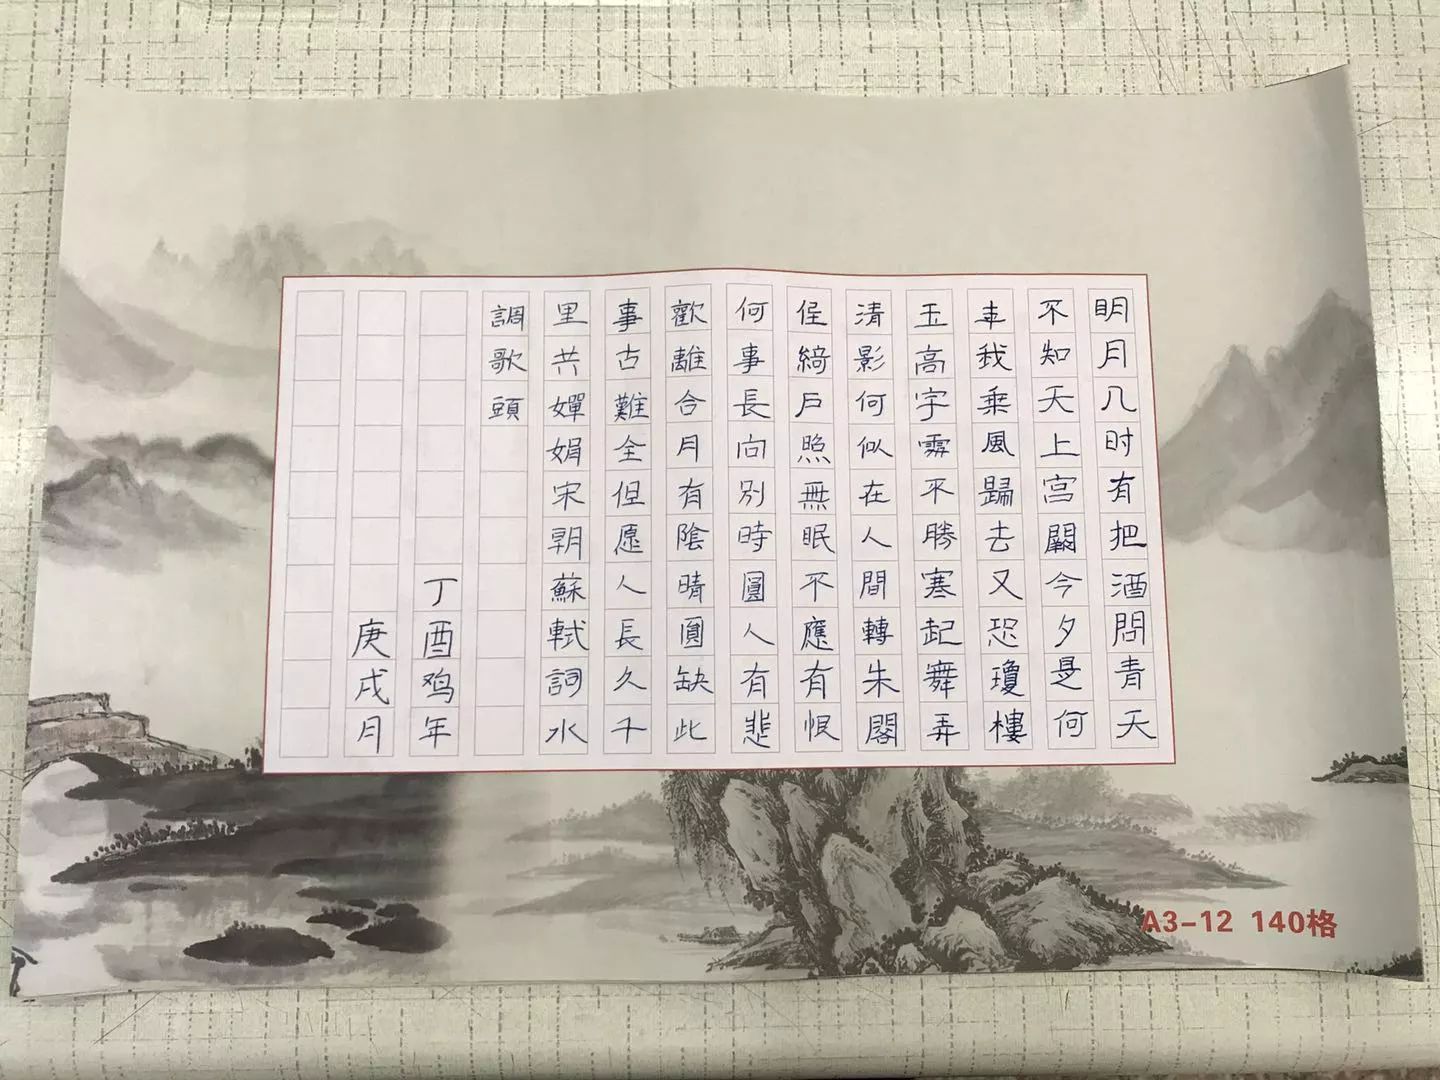 明月几时有把酒問青天
不知天上宫闕今夕是何
年我乗風歸去又恐瓊樓
玉高宇雰不勝寒起舞弄
清影何似在人間轉朱閣
低綺户照無眠不應有恨
何事長向别時圓人有悲
歡離合月有陰晴圓缺此
事古難全但愿人長久千
里共嬋娟宋朝蘇軾詞水
調歌頭
丁酉鸡年
庚戌月
A3-12 140格